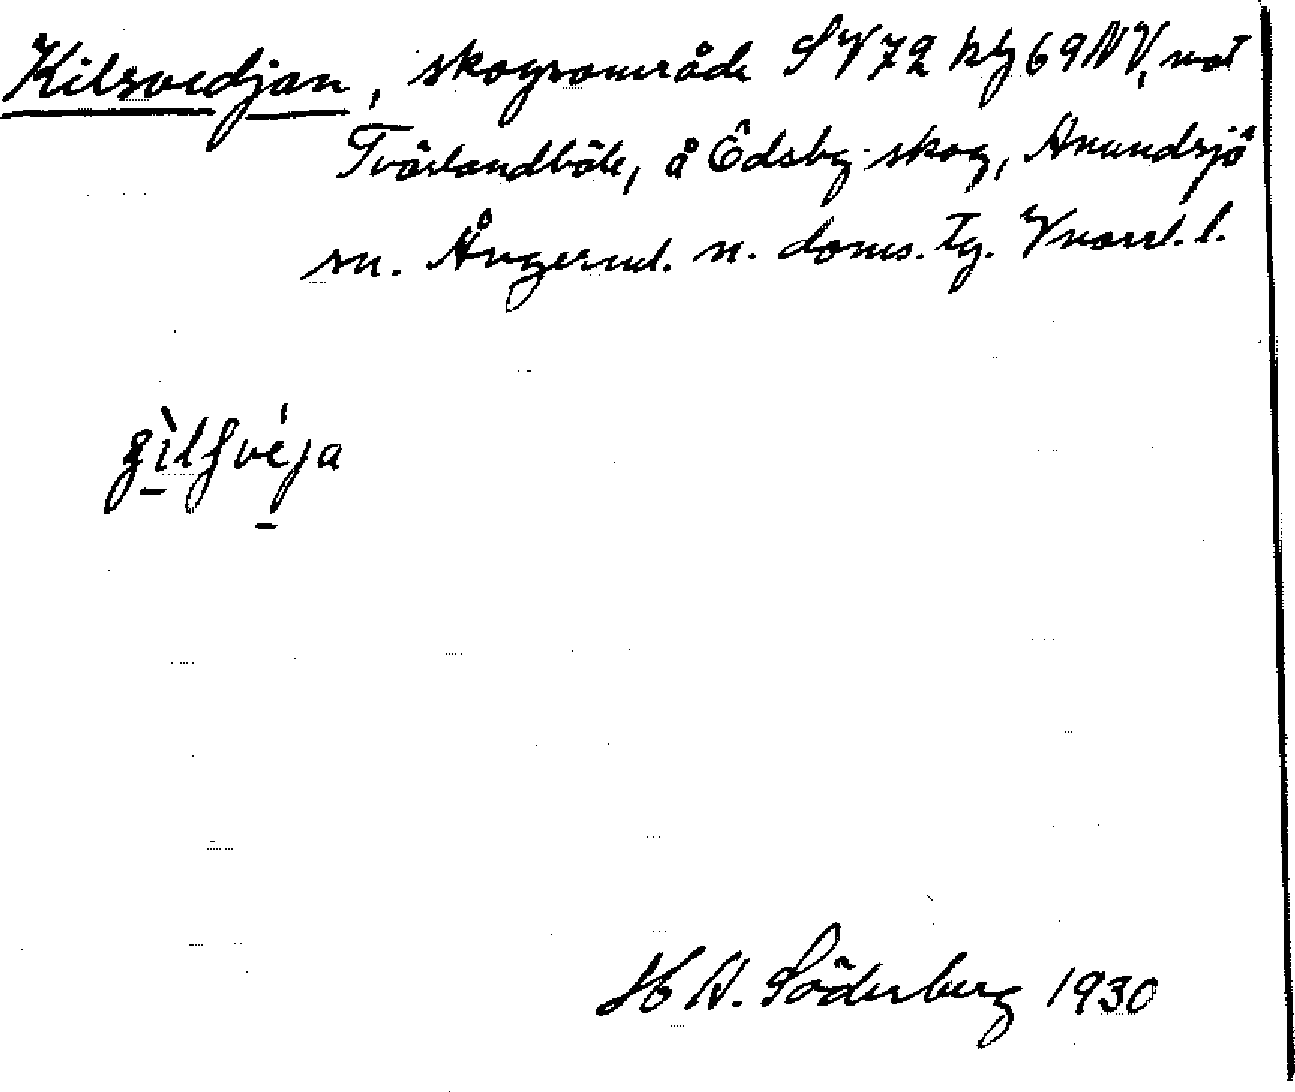 Kilsvedjan, skogsområde SV72 hg 69NV, mot
Tvärlandböle, å Edsby skog, Anundsjö
sn. Ångerml. n. doms. tg. Vnorrl. l.
gìlsvéja
H A. Söderberg 1930